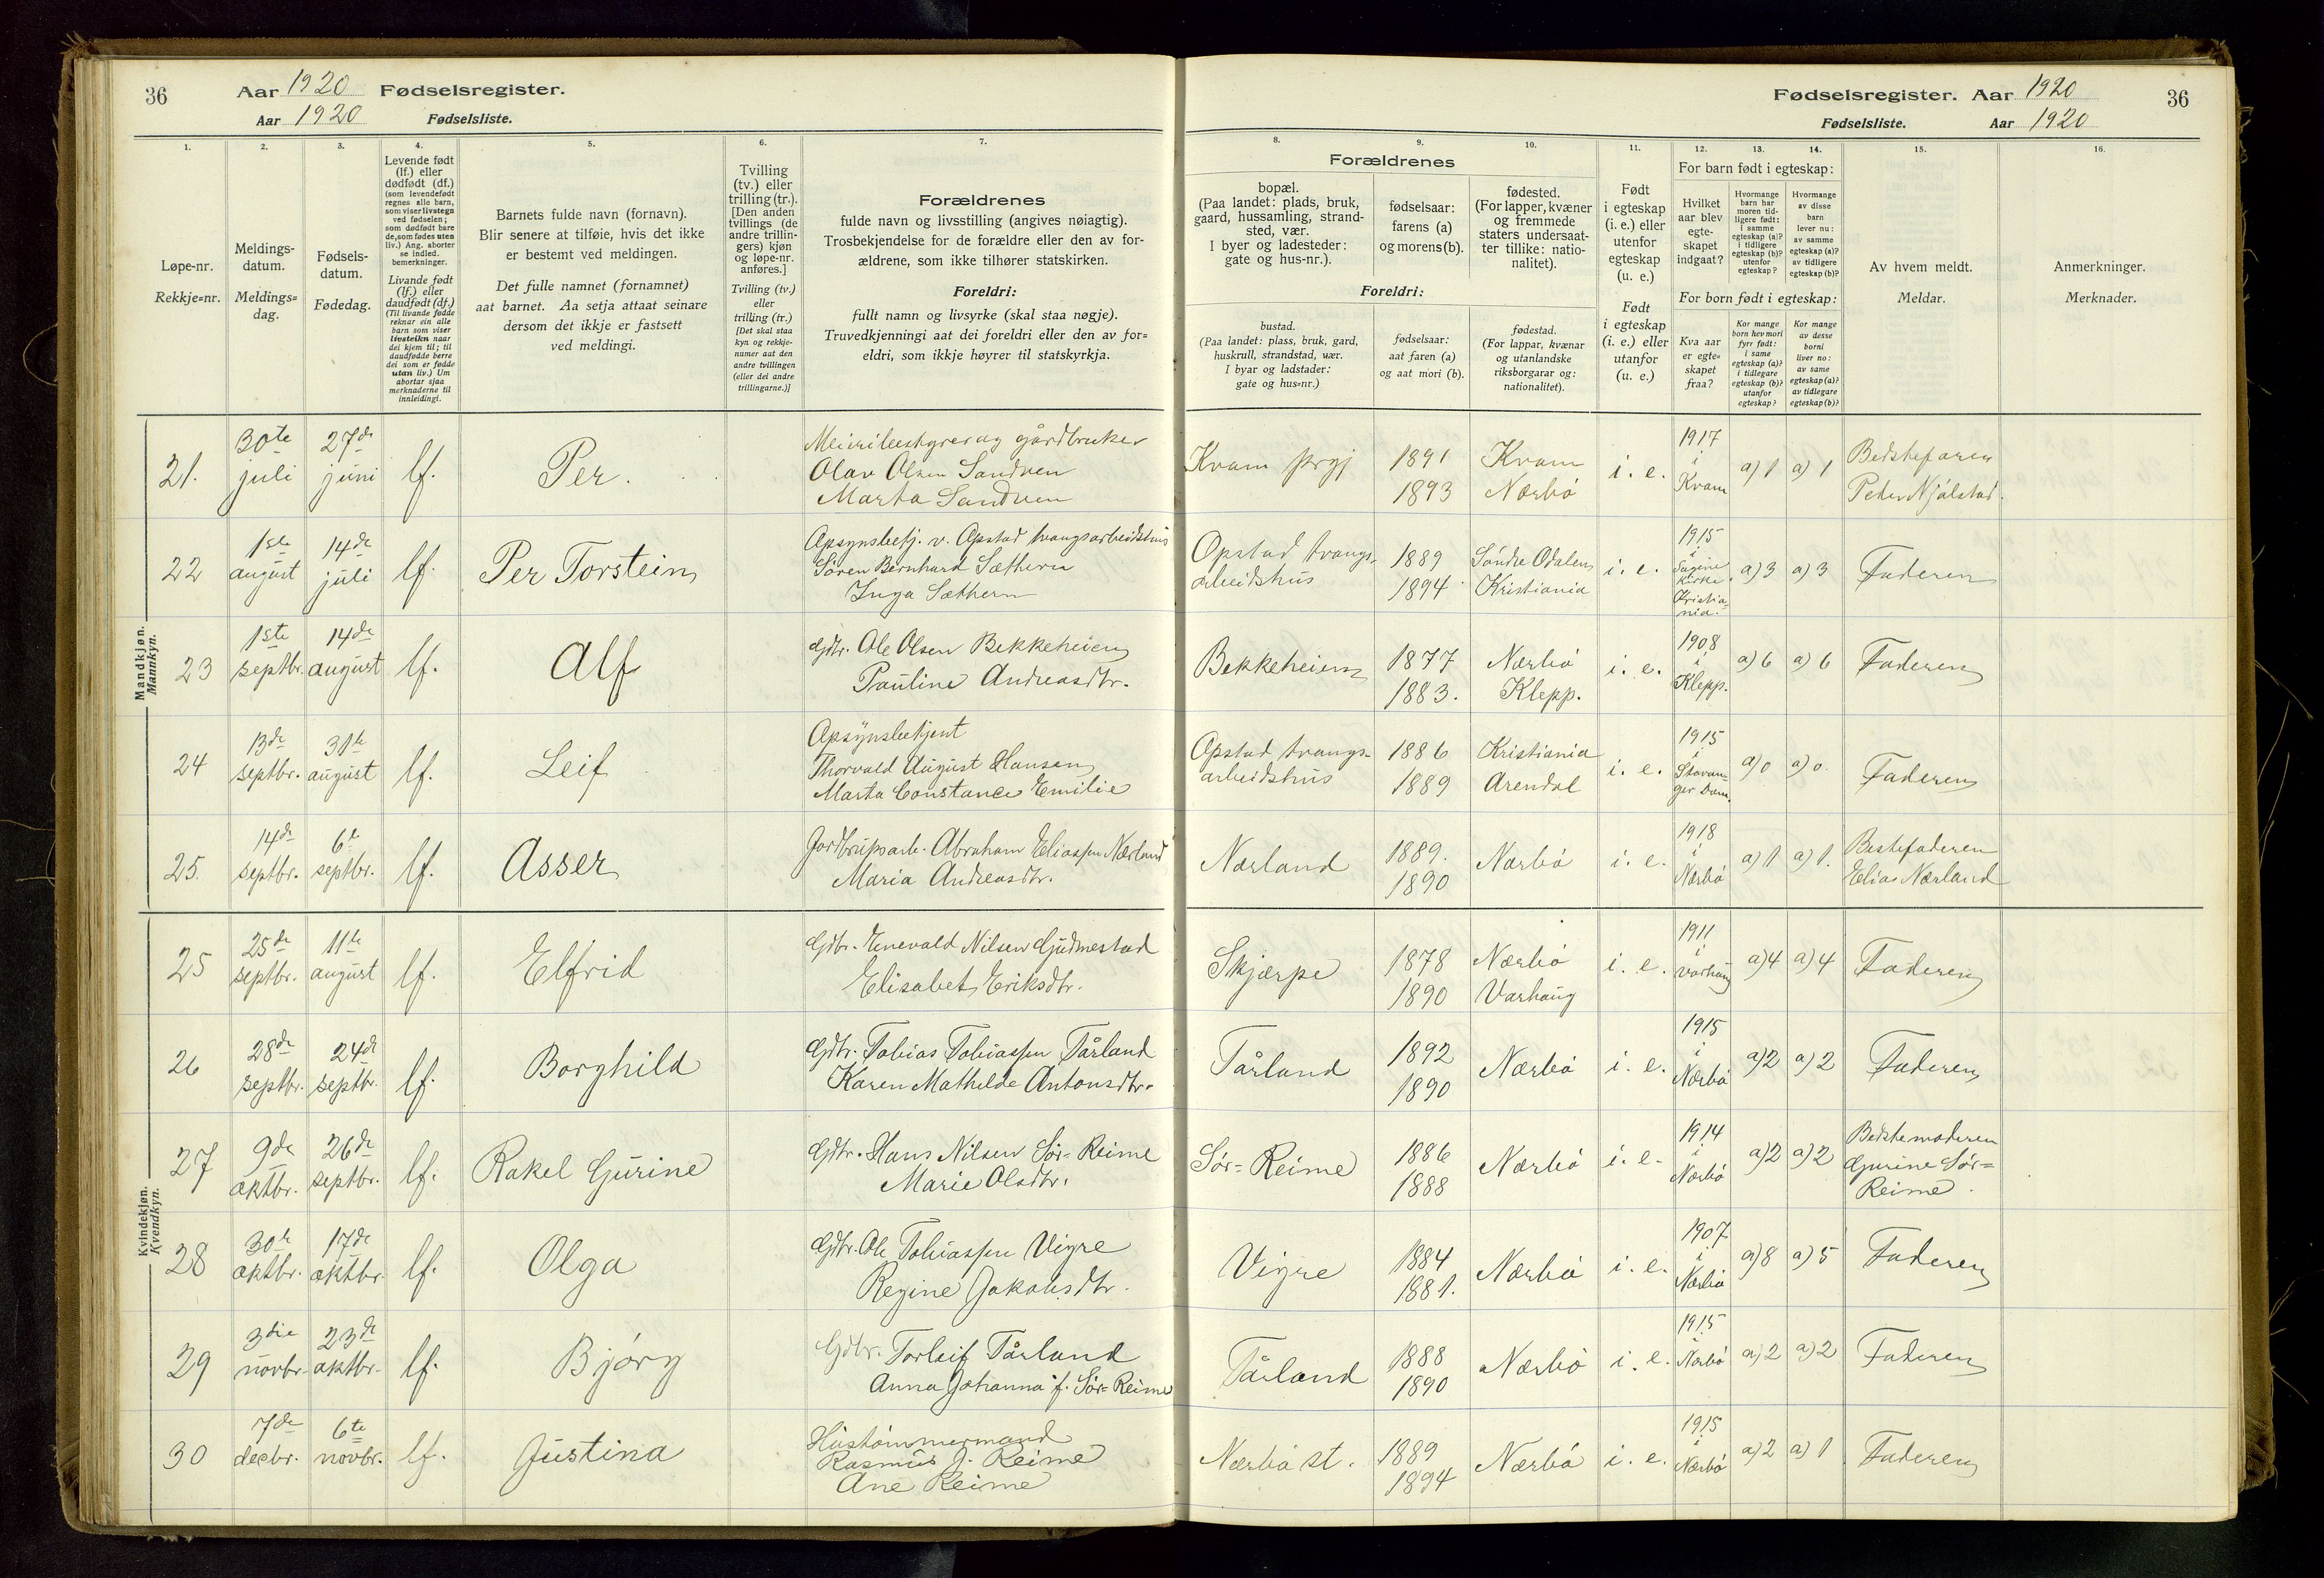 36 Aar 1920 Fødselsregister.
Aar 1920 Fødselsliste.
Fødselsregister. Aar 1920 36
Fødselsliste. Aar 1920
1. 2. 3. 4. 5. 6. 7. 8. 9. 10. 11. 12. 13. 14. 15. 16.
Løpe-nr.
Rekkje=nr.
Meldings-
datum.
Meldings=
dag.
Fødsels-
datum.
Fødedag.
Levende født
(lf.) eller
dødfødt (df.)
(som levendefødt
regnes alle barn,
som viser livstegn
ved fødselen;
som dødfødt bare
de, som fødes uten
liv.) Ang. aborter
se indled.
bemerkninger.
Livande født
(lf.) eller
daudfødt (df.)
(Til livande fødde
reknar ein alle
barn som viser
livsteikn naar
dei kjem til; til
daudfødde berre
dei som er fødde
utan liv.) Um
abortar sjaa
merknaderne til
innleidingi.
Barnets fulde navn (fornavn).
Blir senere at tilføie, hvis det ikke
er bestemt ved meldingen.
Det fulle namnet (fornamnet)
aat barnet. Aa setja attaat seinare
dersom det ikkje er fastsett
ved meldingi.
Tvilling
(tv.) eller
trilling (tr.).
[Den anden
tvillings (de
andre trillin-
gers) kjøn
og løpe-nr.
anføres.]
Tvilling (tv.)
eller
trilling (tr.)
[Det skal staa
kyn og rekkje-
numer aat den
andre tvillingen
(eller dei andre
trillingarne.)]
Forældrenes
fulde navn og livsstilling (angives nøiagtig).
Trosbekjendelse for de forældre eller den av for-
ældrene, som ikke tilhører statskirken.
Foreldri:
fullt namn og livsyrke (skal staa nøgje).
Truvedkjenningi aat dei foreldri eller den av for=
eldri, som ikkje høyrer til statskyrkja.
Forældrenes
bopæl.
(Paa landet: plads, bruk,
gaard, hussamling, strand-
sted, vær.
I byer og ladesteder:
gate og hus-nr.).
fødselsaar:
farens (a)
og morens (b).
fødested.
(For lapper, kvæner
og fremmede
staters undersaat-
ter tillike: natio-
nalitet).
Foreldri:
bustad.
(Paa landet: plass, bruk, gard,
huskrull, strandstad, vær.
I byar og ladstader:
gate og hus-nr.)
fødselsaar:
aat faren (a)
og aat mori (b).
fødestad.
(For lappar, kvænar
og utanlandske
riksborgarar og:
nationalitet).
Født
i egteskap
(i. e.) eller
utenfor
egteskap
(u. e.)
Født
i egteskap
(i. e.) eller
utanfor
(u. e.)
For barn født i egteskap:
Hvilket
aar blev
egte-
skapet
indgaat?
Hvormange
barn har
moren tid-
ligere født:
i samme
egteskap (a)?
i tidligere
egteskap (b)?
utenfor
egteskap?
Hvormange
av disse
barn
lever nu:
av samme
egteskap (a)?
av tidligere
egteskap (b)?
For born født i egteskap:
Kva aar
er egte=
skapet
fraa?
Kor mange
born hev mori
fyrr født:
i same
egteskap (a)?
i tidlegare
egteskap (b)?
utanfor
egteskap?
Kor mange
av desse
borni
liver no:
av same
egteskap (a)?
av tidlegare
egteskap (b)?
Av hvem meldt.
Meldar.
Anmerkninger.
Merknader.
Mandkjøn.
Mannkyn.
21. 30te juli 27de juni lf. Per.
Meieribestyrer og gårdbruker
Olav Olsen Sandven
Marta Sandven
Kvam prgj 1891 1893 Kvam Nærbö i. e. 1917 i Kvam a) 1 a) 1 Bedstefaren
Peder Njålstad.
22 1ste august 14de juli lf. Per Torstein
Opsynsbetj. v. Opstad tvangsarbeidshus
Sören Bernhard Sæthern
Inga Sæthern
Opstad tvangs-
arbeidshus 1889 1894 Söndre Odalen Kristiania i. e. 1915 i Sagene kirke. Kristia-
nia. a) 3 a) 3 Faderen
23 1ste septbr. 14de august lf. Alf
Gdbr. Ole Olsen Bekkeheien
Pauline Andreasdtr.
Bekkeheien 1877 1883. Nærbö Klepp. i. e. 1908 i Klepp. a) 6 a) 6 Faderen
24 13de septbr. 31te august lf. Leif
Opsynsbetjent
Thorvald August Hansen
Marta Constance Emilie
Opstad tvangs-
arbeidshus 1886 1889 Kristiania Arendal i. e. 1915 i Stavan-
ger Dom. a) 0 a) 0. Faderen
25. 14de septbr. 6te septbr. lf. Asser
Jordbruksarb. Abraham Eliassen Nærland
Maria Andreasdtr.
Nærland 1889. 1890 Nærbö i. e. 1918 i Nærbö a) 1 a) 1. Bestefaderen
Elias Nærland
Kvindekjøn.
Kvendkyn.
25 25de septbr. 11te august lf. Elfrid
Gdbr. Enevald Nilsen Gudmestad
Elisabet Eriksdtr.
Skjærpe 1878 1890 Nærbö Varhaug i. e. 1911 i Varhaug a) 4 a) 4 Faderen
26 28de septbr. 24de septbr. lf. Borghild
Gdbr. Tobias Tobiassen Tårland
Karen Mathilde Antonsdtr.
Tårland 1892 1890 Nærbö i. e. 1915 i Nærbö a) 2 a) 2 Faderen
27 9de oktbr. 26de septbr. lf. Rakel Gurine
Gdbr. Hans Nilsen Sör-Reime
Marie Olsdtr.
Sör=Reime 1886 1888 Nærbö i. e. 1914 i Nærbö a) 2 a) 2 Bedstemoderen
Gurine Sör=
Reime.
28 30te oktbr. 17de oktbr. lf. Olga
Gdbr. Ole Tobiassen Vigre
Regine Jakobsdtr.
Vigre 1884 1881. Nærbö i. e. 1907 i Nærbö a) 8 a) 5 Faderen
29 3die novbr. 23de oktbr. lf. Björg
Gdbr. Torleif Tårland
Anna Johanna f. Sör=Reime
Tårland 1888 1890 Nærbö i. e. 1915 i Nærbö a) 2 a) 2 Faderen
30 7de decbr. 6te novbr. lf. Justina
Hustömmermand
Rasmus J. Reime
Ane Reime
Nærbö st. 1889 1894 Nærbö i. e. 1915 i Nærbö a) 2 a) 1 Faderen